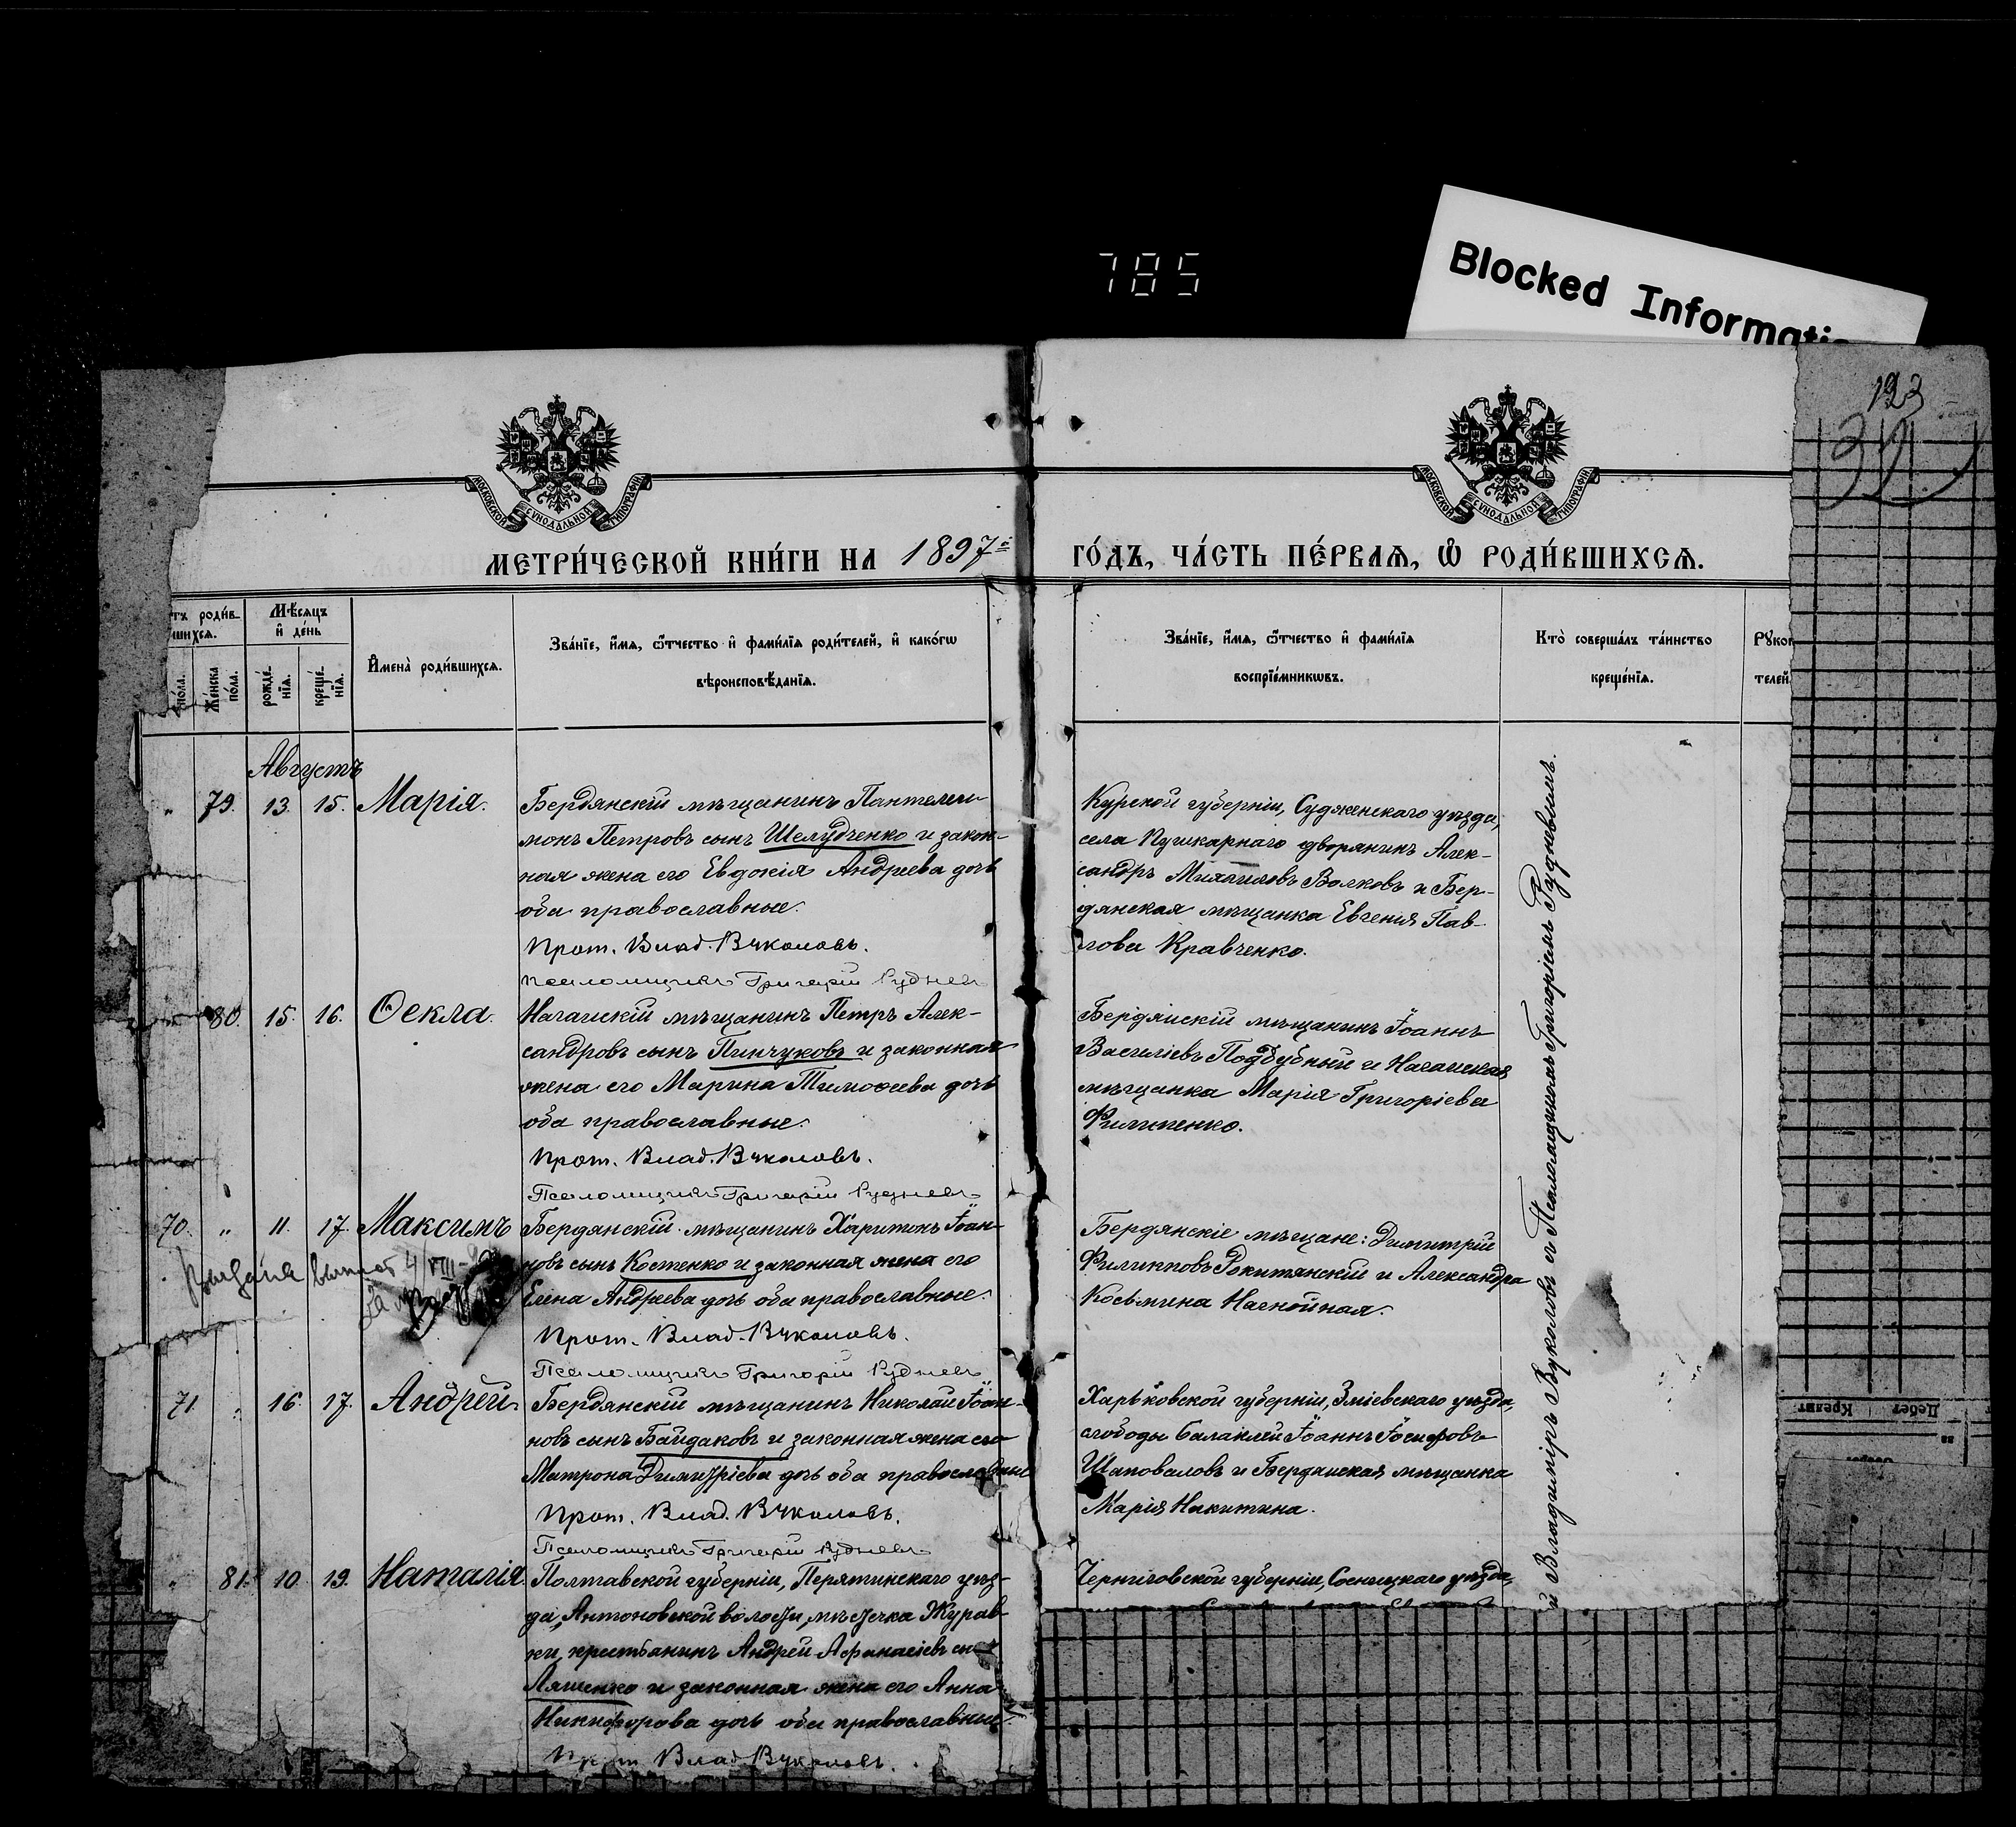 785
Blocked Informati
193
МОСКОВСКОЙ СѴНОДАЛЬНОЙ ТИПОГРАФІИ
МОСКОВСКОЙ СѴНОДАЛЬНОЙ ТИПОГРАФІИ
МЕТРИ́ЧЕСКОЙ КНИ́ГИ НА 1897й
ГО́ДЪ, ЧА́СТЬ ПЕ́РВАЯ, Ѿ РОДИ́ВШИХСѦ.
тъ роди́в
шихсѧ.
Мѣ́сѧцъ
и҆ де́нь
по́ла.
Же́нска по́ла.
рожде́нїѧ.
креще́нїѧ.
И҆мена̀ роди́вшихсѧ.
Зва́нїе, и҆́мѧ, ѻ҆́тчество и҆ фами́лїѧ роди́телей, и҆ како́гѡ
вѣроисповѣ́данїѧ.
Зва́нїе, и҆́мѧ, ѻ҆́тчество и҆ фами́лїѧ
воспрїе́мникѡвъ.
Кто̀ соверша́лъ та́инство
креще́нїѧ.
Рꙋко
телей
Августъ
" 79. 13. 15. Марія.
Бердянскій мѣщанинъ Пантелеи-
монъ Петровъ сынъ Шелудченко и закон-
ная жена его Евдокія Андреева дочь
оба православные.
Прот. Влад. Вуколовъ.
Псаломщикъ Григорій Рудневъ
Курской губерніи, Суджанскаго уѣзда,
села Пушкарнаго дворянинъ Алек-
сандръ Михаиловъ Волковъ и Бер-
дянская мѣщанка Евгенія Пав-
лова Кравченко.
80. 15. 16. Ѳекла.
Ногайскій мѣщанинъ Петръ Алек-
сандровъ сынъ Пинчуковъ и законная
жена его Марина Тимоѳеева дочь
оба православные.
Прот. Влад. Вуколовъ.
Псаломщикъ Григорій Рудневъ
Бердянскій мѣщанинъ Іоаннъ
Василіевъ Поддубный и Ногайская
мѣщанка Марія Григоріева
Филипенко.
70. " 11. 17. Максимъ
Бердянскій мѣщанинъ Харитонъ Іоан-
новъ сынъ Костенко и законная жена его
Елена Андреева дочь оба православные.
Прот. Влад. Вуколовъ.
Псаломщикъ Григорій Рудневъ
Бердянскіе мѣщане: Димитрій
Филипповъ Рокитянскій и Александра
Косьмина Нагнойная.
71. " 16. 17. Андрей
Бердянскій мѣщанинъ Николай Іоан-
новъ сынъ Байдаковъ и законная жена его
Матрона Димитріева дочь оба православные
Прот. Влад. Вуколовъ.
Псаломщикъ Григорій Рудневъ
Харьковской губерніи, Зміевскаго уѣзда,
слободы Балаклеи Іоаннъ Іосифовъ
Шаповаловъ и Бердянская мѣщанка
Марія Никитина.
" 81. 10. 19. Наталія.
Полтавской губерніи, Пирятинскаго уѣз-
да, Антоновской волости, мѣстечка Журав-
ки, крестьянинъ Андрей Афанасіевъ сынъ
Ляшенко и законная жена его Анна
Никифорова дочь оба православные.
Прот. Влад. Вуколовъ.
Черниговской губерніи, Сосницкаго уѣзда,
й Владиміръ Вуколовъ съ Псаломщикомъ Григоріемъ Рудневымъ.
Дебет Кредит